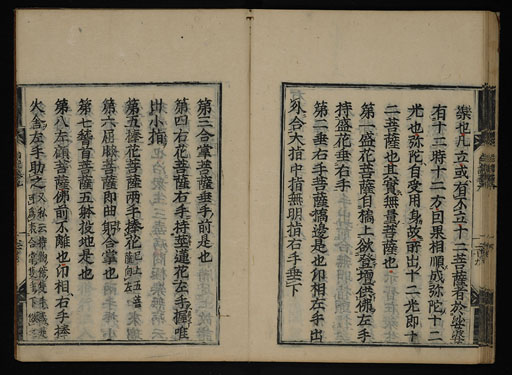 樂也凡立或有不立十二菩薩者於娑婆
有十二時十二方因果相順成弥陀十二
光也弥陀自受用身故所出十二光即十
二菩薩也其實無量菩薩也
第一盛花菩薩自橋上欲登壇供佛左手
持盛花垂右手
第二垂右手菩薩橋邊是也印相左手出
外合大指中指無明指右手垂下
第三合掌菩薩垂手前是也
第四右花菩薩右手持莖蓮花左手握唯
出小指
第五捧花菩薩兩手捧花
第六屈膝菩薩即曲躬合掌也
第七稽首菩薩五躰投地是也
第八左顧菩薩佛前不離也印相右手捧
火舍左手助之